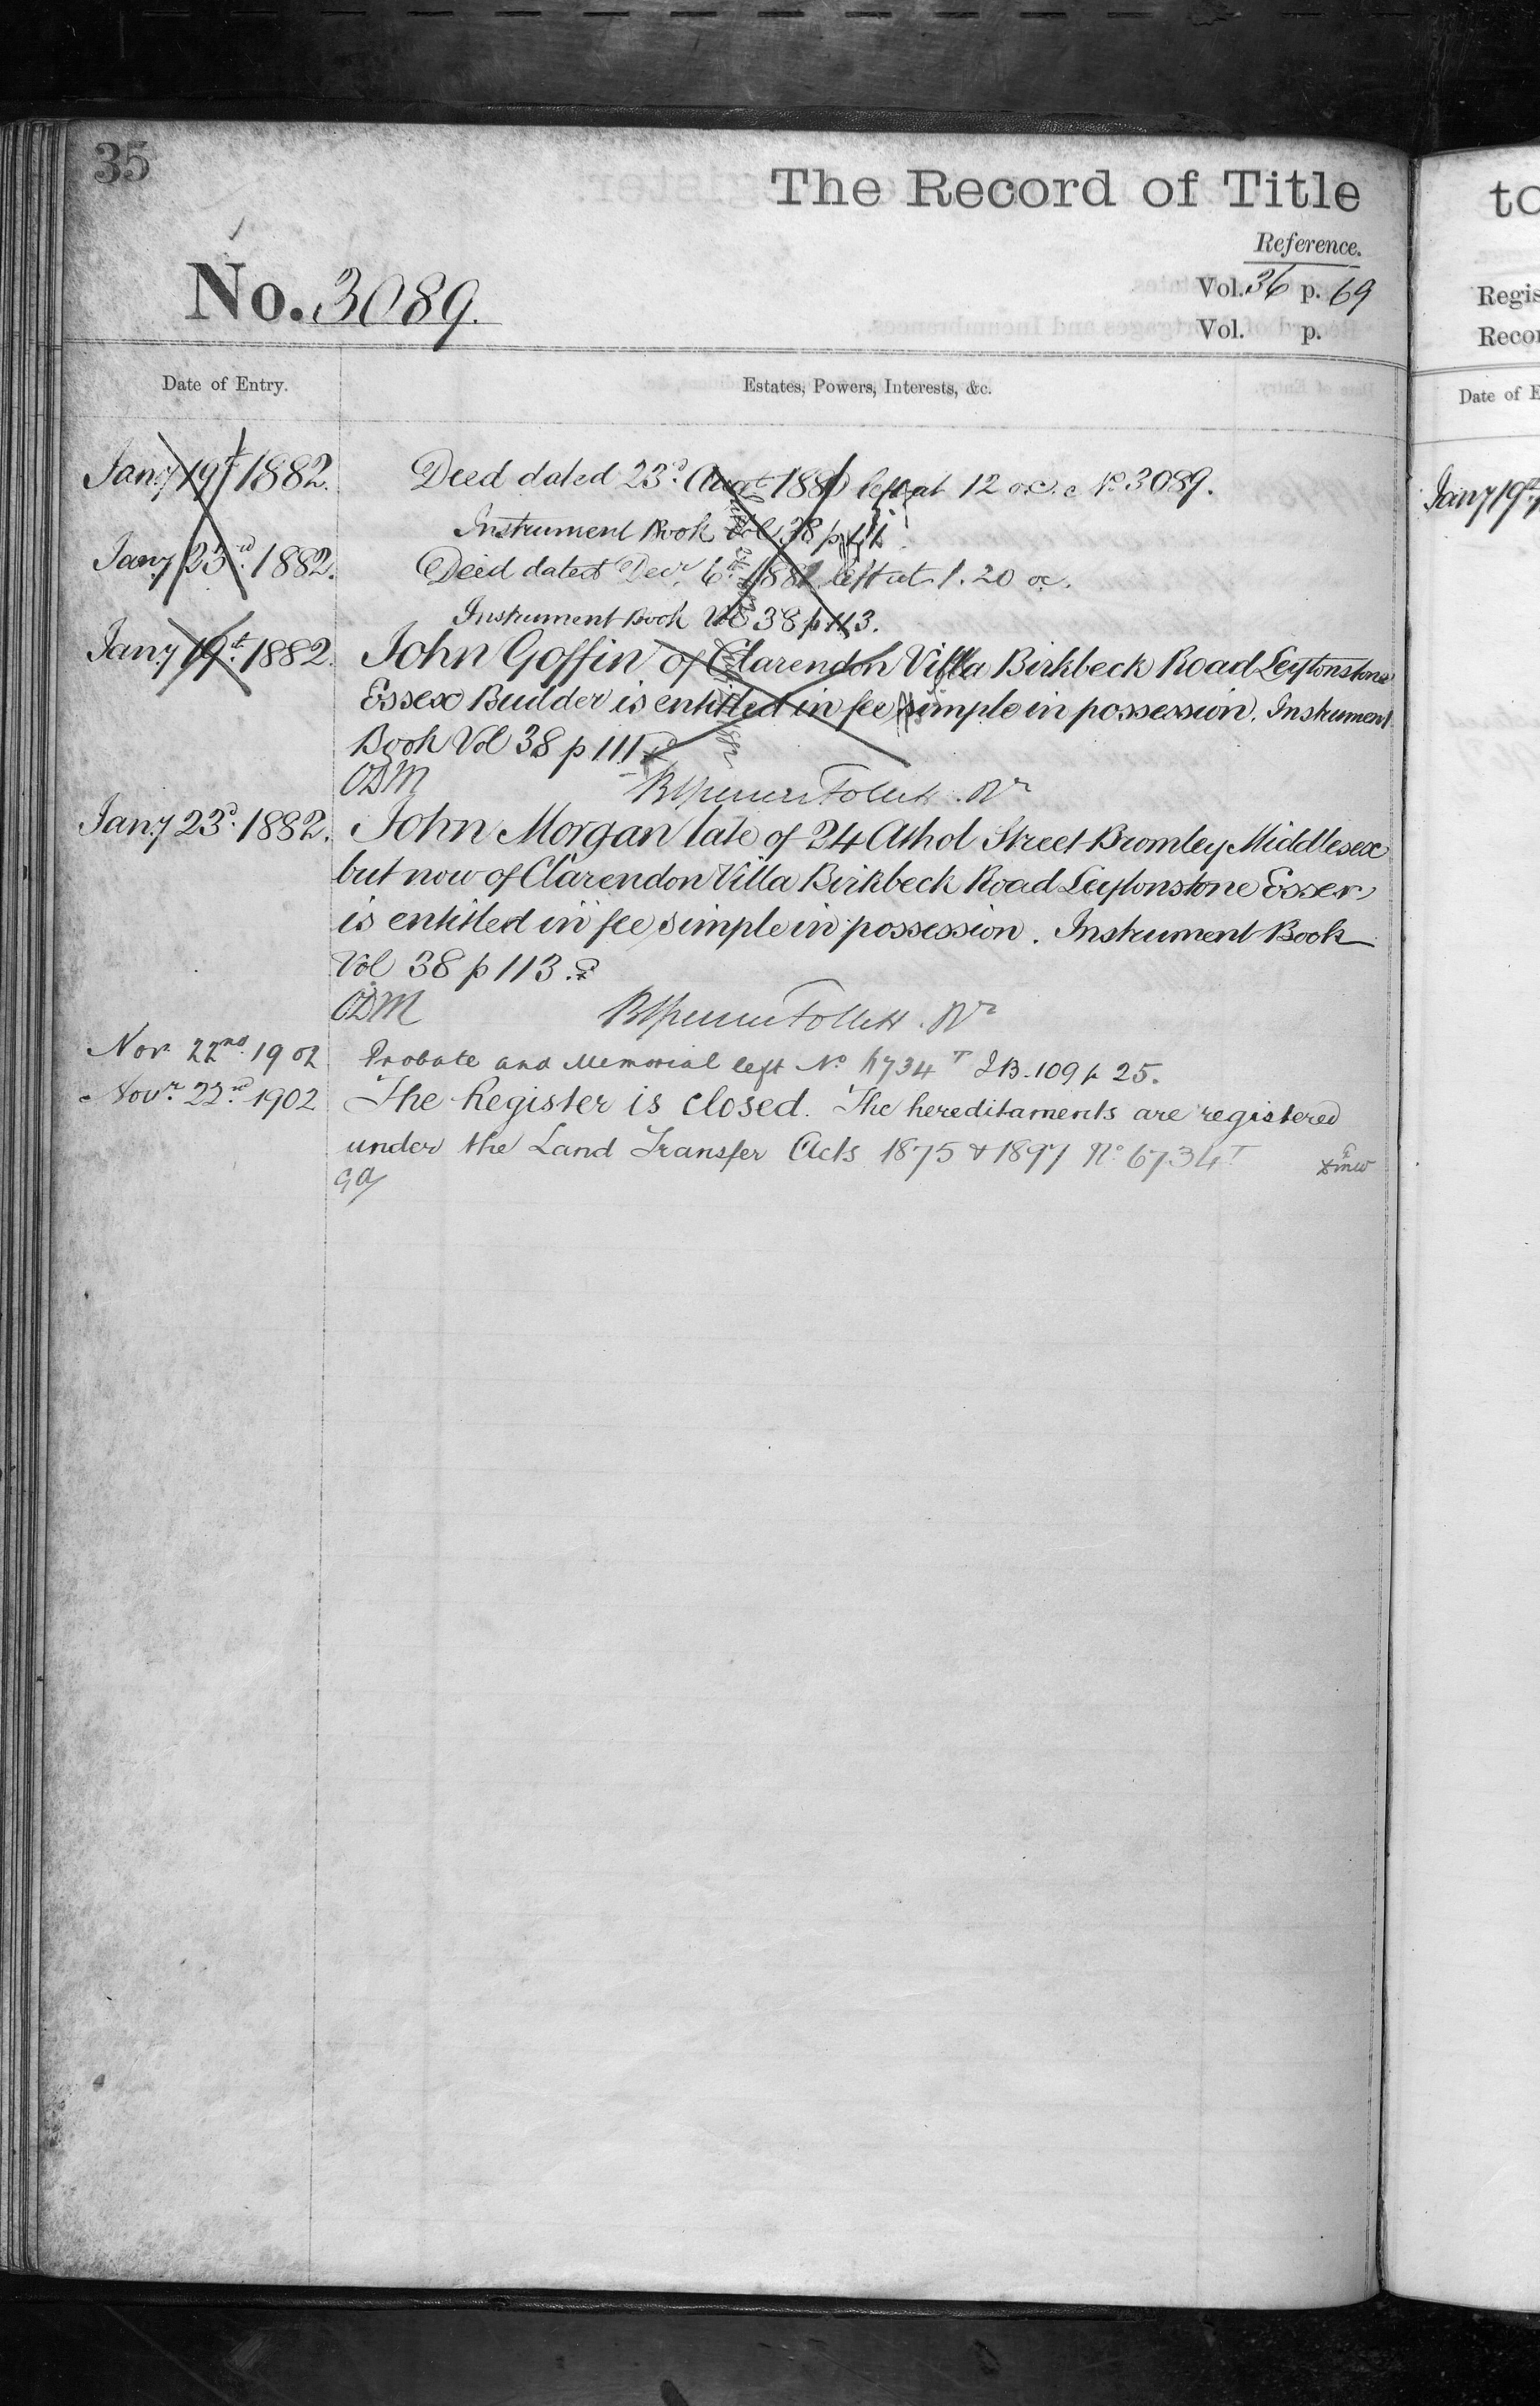 35
The Record of Title
Reference.
No. 3089.
Vol. 36 p. 69
Vol. p.
Date of Entry.
Estates, Powers, Interests, &c.
Jany 19th 1882. Deed dated 23d Augt 1881 left at 12 oc. No 3089.
Instrument Book Vol 38 p 111.
Jany 23rd 1882. Deed dated Decr 6th 1881 left at 1.20 oc.
Instrument Book Vol 38 p 113.
Jany 19th 1882. John Goffin of Clarendon Villa Birkbeck Road Leytonstone
Essex Builder is entitled in fee simple in possession. Instrument
Book Vol 38 p 111
ODM
Jany 23d 1882. John Morgan late of 24 Athol Street Bromley Middlesex
but now of Clarendon Villa Birkbeck Road Leytonstone Essex
is entitled in fee simple in possession. Instrument Book
Vol 38 p 113.
ODM
Nov 22nd 1902 Probate and Memorial left No 6734 T I B. 109 p 25.
Novr 22nd 1902 The Register is closed. The hereditaments are registered
under the Land Transfer Acts 1875 & 1897 No 6734 T
to
Regis
Recor
Date of E
Jany 19th